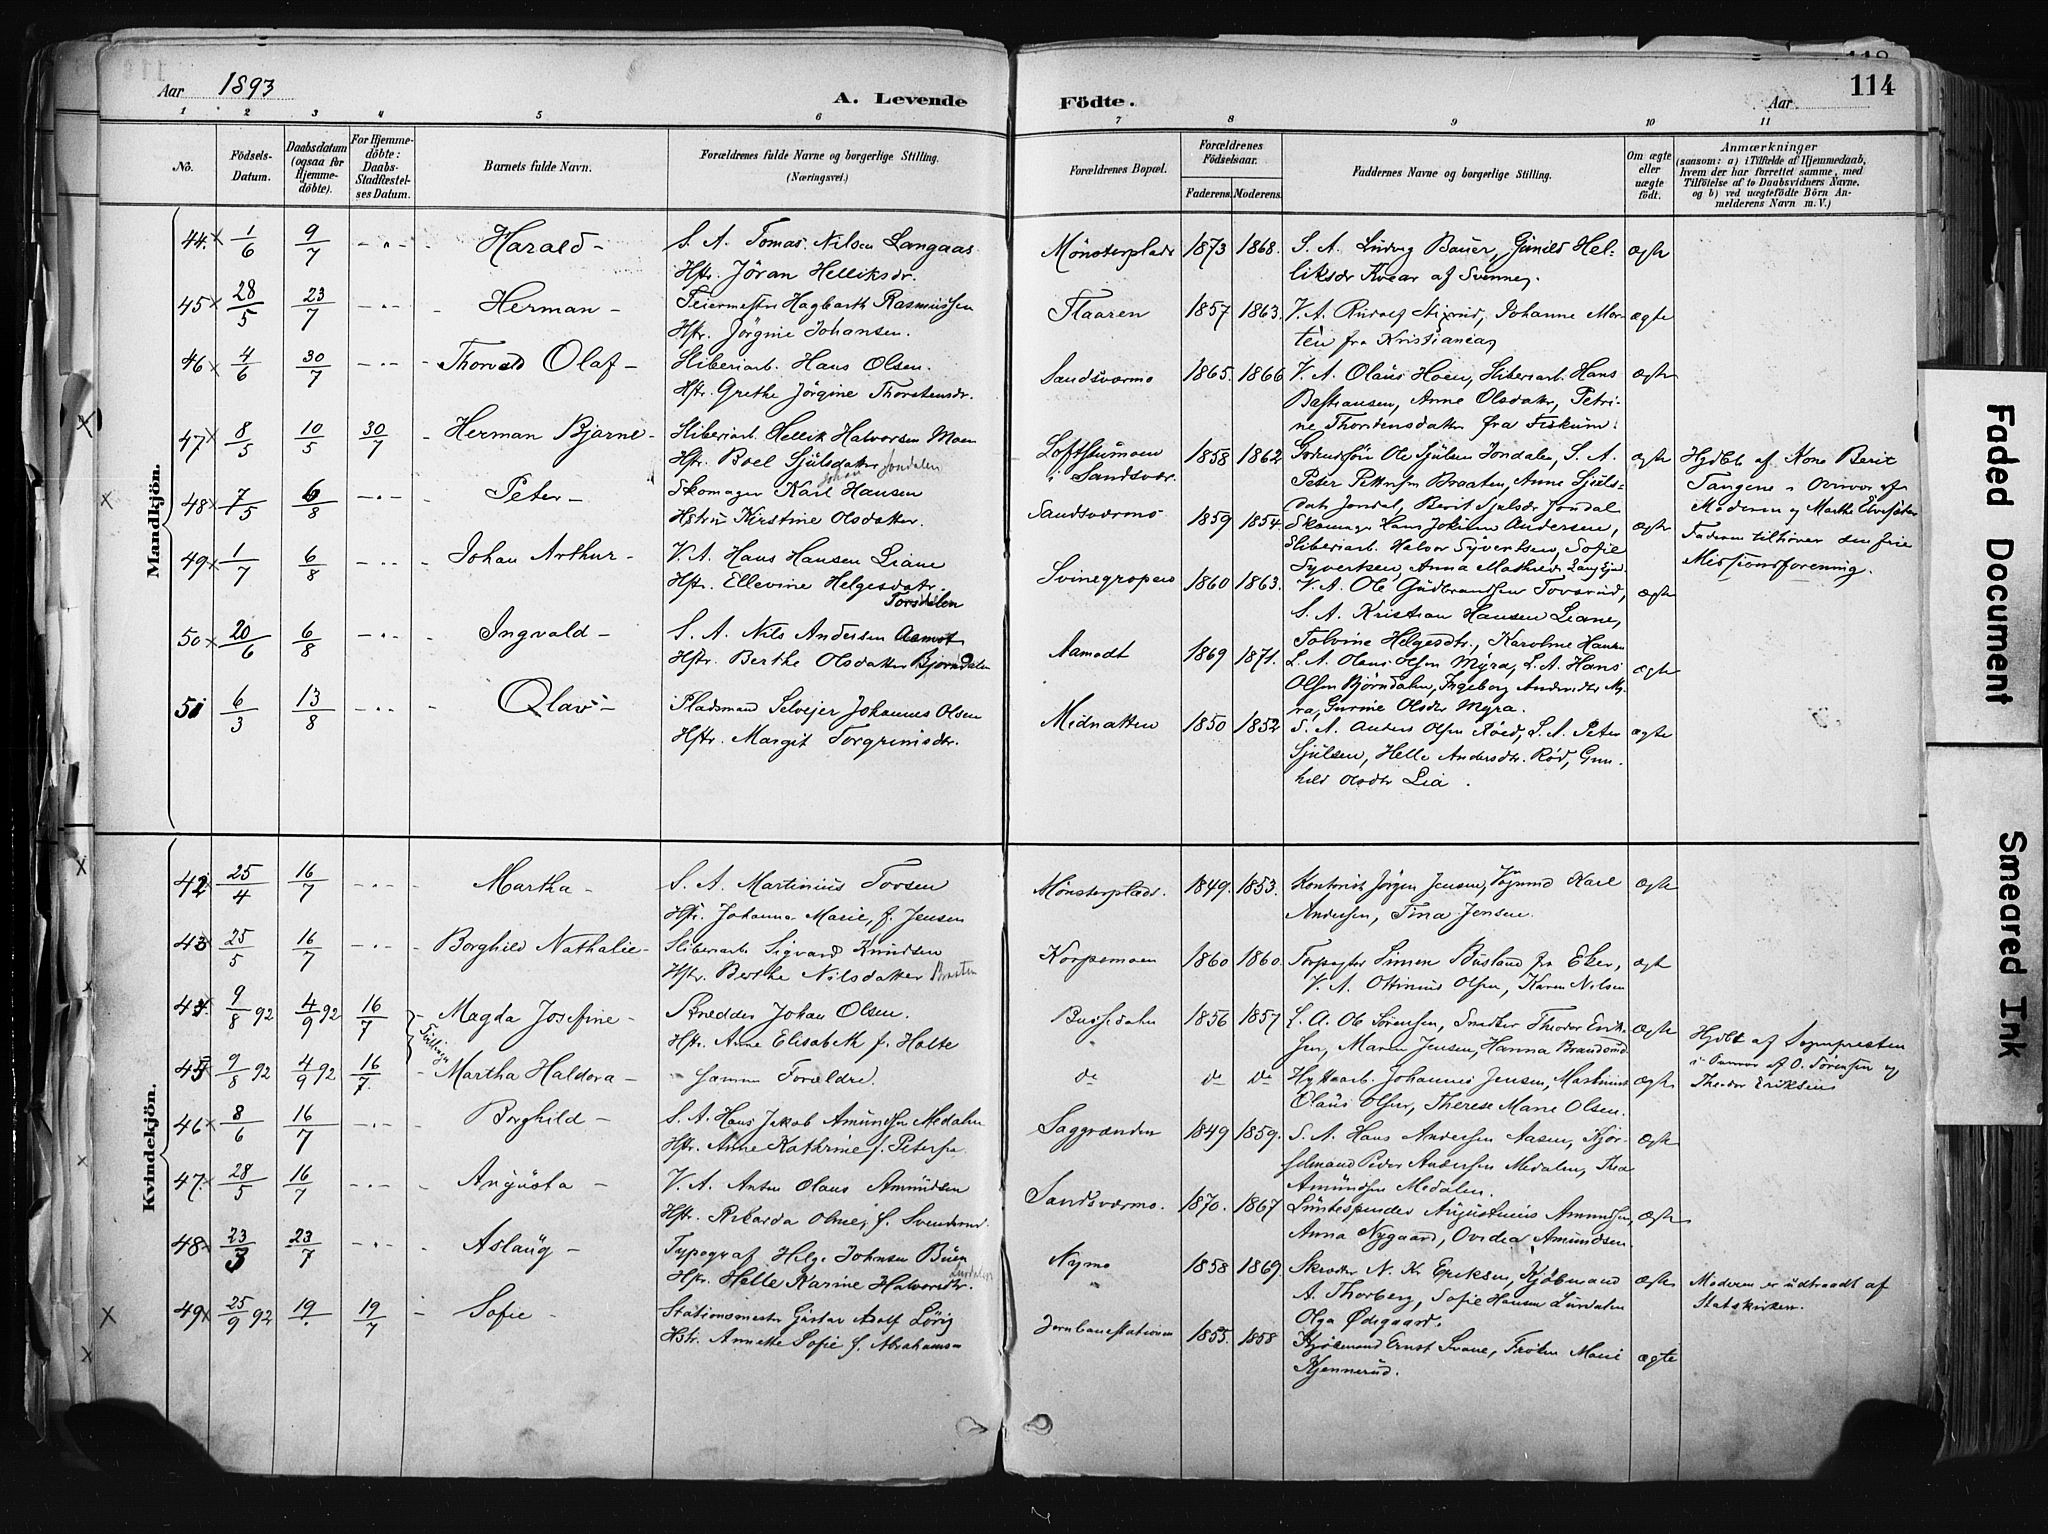 Aar 1893
A. Levende Födte.
Aar
114
1 2 3 4 5 6 7 8 9 10 11
No.
Födsels-Datum.
Daabsdatum (ogsaa for Hjemmedöbte).
For Hjemmedöbte: Daabs-Stadfæstelses Datum.
Barnets fulde Navn.
Forældrenes fulde Navne og borgerlige Stilling. (Næringsvei.)
Forældrenes Bopæl.
Forældrenes Födselsaar.
Faderens. Moderens.
Faddernes Navne og borgerlige Stilling.
Om ægte eller uægte födt.
Anmærkninger
(saasom: a) i Tilfælde af Hjemmedaab, hvem der har forrettet samme, med Tilföielse af to Daabsvidners Navne, og b) ved uægtefödte Börn Anmelderens Navn m. V.)
Mandkjön.
44. 1/6 9/7 Harald - S. A. Tomas Nilsen Langaas Mönsterplads 1873 1868. S. A. Ludvig Bauer, Gunild Hel- ægte
Hstr. Jöran Helliksdr. liksdr Kvear af Svenne
45 28/5 23/7 Herman - Feiermester Hagbarth Rasmussen Flaaren 1857 1863. V. A. Rudolf Johanne Mor- ægte
Hstr. Jörgine Johansen. fra Kristiania
46 4/6 30/7 Thorvald Olaf - Sliberiarb. Hans Olsen. Sandsværmo 1865. 1866 V. A. Olaus Hoen, Sliberiarb. Hans ægte
Hstr. Grethe Jörgine Thorstensdr. Bastiansen, Anne Olsdatter, Petri-
ne Thorstensdatter fra Fiskum.
47 8/5 10/5 30/7 Herman Bjarne - Sliberiarb. Hellik Halvorsen Moen Loftstumoen i Sandsvær. 1858 1862 Ole Sjulsen Jondalen, S. A. ægte Hjdbt. af Kone Berit
Hstr. Boel Sjulsdatter Jondalen Peter Pettersen Braaten, Anne Sjuls- Tangene i Overvær af
datr Jondal, Berit Sjulsdr Jondal Moderen og Marthe
48 7/5 6/8 Peter - Skomager Karl Johan Hansen Sandsværmo 1859 1854. Skomager Hans Jokum Andersen, ægte Faderen tilhörer den frie
Hstru Kirstine Olsdatter. Sliberiarb. Halvor Syvertsen, Sofie Missionsforening.
Syvertsen, Anna Mathilde
49 1/7 6/8 Johan Arthur - V. A. Hans Hansen Liane Svinegropen 1860 1863. V. A. Ole Gudbrandsen Tovsrud, ægte
Hstr. Ellevine Helgesdatr. Torsdalen S. A. Kristian Hansen Liane,
Tolvine Helgesdtr., Karoline Hansen
50 20/6 6/8 Ingvald - S. A. Nils Andersen Aamot Aamodt 1869 1871. L. A. Olaus Olsen Myra, L. A. Hans ægte
Hstr. Berthe Olsdatter Björndalen Olsen Björndalen, Ingeborg Andersdtr My-
ra, Gurine Olsdtr Myra.
51 6/3 13/8 Olav - Pladsmand Selveier Johannes Olsen Midnatten 1850 1852 S. A. Anders Olsen Röed, L. A. Peter ægte
Hstr. Margit Torgrimsdtr. Sjulsen, Helle Andersdtr. Röd, Gun-
hild Olsdtr Lia.
Kvindekjön.
42 25/4 16/7 Martha - S. A. Martinius Torsen Mönsterplads. 1849. 1853. Kontorist Jörgen Jensen, Karl ægte
Hstr. Johanne Marie, f. Jensen Andersen, Tina Jensen.
43 25/5 16/7 Borghild Nathalie - Sliberiarb Sigvard Knudsen Korpemoen 1860 1860. Simen Busland fra Eker, ægt
Hstr. Berthe Nilsdatter Braaten V. A. Ottinius Olsen, Karen Nilsen
44 9/8 92 4/9 92 16/7 Magda Josefine - Snedder Johan Olsen. Bussedalen 1856 1857 L. A. Ole Sörensen, Snedker Theodor Erik- ægte Hjdbt af Sognepresten
Tvillinger Hstr. Anne Elisabeth f. Holte sen, Maren Jensen, Hanna i Overvær af O. Sörensen og
45 9/8 92 4/9 92 16/7 Martha Haldora - samme Forældre. do do do Hyttearb. Johannes Jensen, Martinius ægte Theodor Eriksen
Olaus Olsen, Therese Marie Olsen.
46 8/6 16/7 Borghild - S. A. Hans Jakob Amundsen Medalen Saggrænden 1849 1859. S. A. Hans Andersen Aasen, Kjöb- ægte
Hstr. Anne Kathrine f. Petersen mand Peder Andersen Medalen, Thea
Amundsen Medalen.
47. 28/5 16/7 Augusta - V. A. Anton Olaus Amundsen Sandsværmo. 1870. 1867 Augustinius Amundsen, ægte
Hstr. Rikarda f. Svendsen. Anna Nygaard, Ovidia Amundsen.
48 23/3 23/7 Aslaug - Typograf Helge Johnsen Buen Nymo 1858 1869. N. Kr. Eriksen, Kjöbmand ægte Moderen er udtraadt af
Hstr. Helle Karine Halvorsdtr. Lurdalen A. Thorberg, Sofie Hansen Lurdalen Statskirken.
Olga Ödegaard.
49 25/9 92 19/. 19/7 Sofie - Stationsmester Gustav Adolf Jernbanestationen 1855. 1858 Kjöbmand Ernst Svane, Fröken Marie ægte
Hstr. Annette Sofie f. Abrahamsen Kjennerud.
Faded Document
Smeared Ink